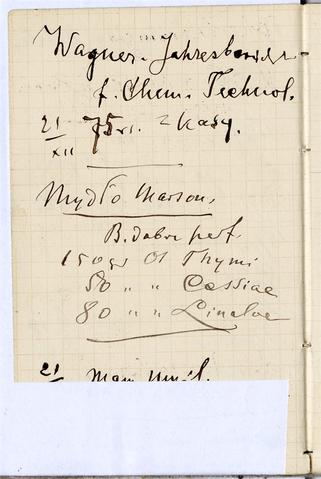 Wagner. Jahresbericht
f. Chem. Technol.
21/XII 75 rs. z kasy.
Mydło Marson.
B. dobre perf
150 gr Ol Thymi
50 " " Cassiae
80 " " Linaloe
21